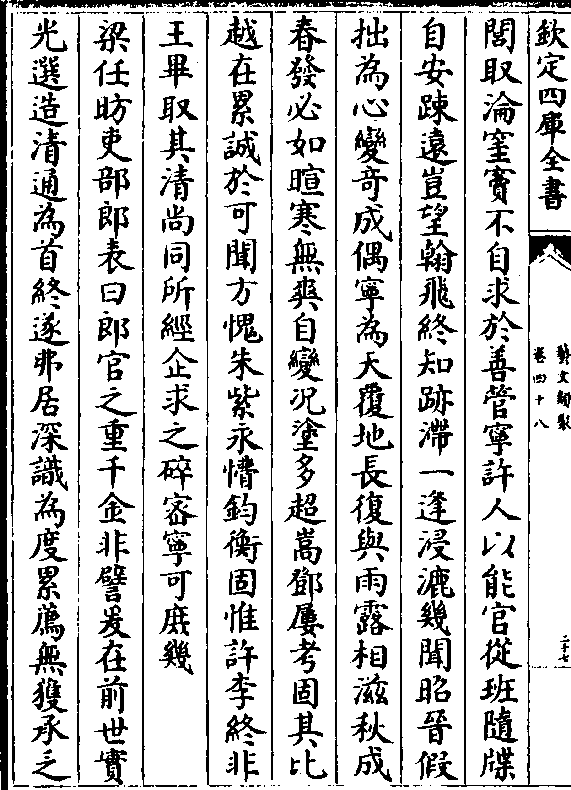 欽定四庫全書
藝文類聚
卷四十八
二十七
閣取淪窐賓不自求於善管寧許人以能官從班隨牒
自安踈遠豈望翰飛終知跡滯一逢浸漉幾聞昭晉假
拙為心變竒成偶寧為天覆地長復與雨露相滋秋成
春發必如暄寒無爽自變况塗多超嵩鄧屢考固其比
越在累誠於可聞方愧朱紫永懵鈞衡固惟許李終非
王畢取其清尚同所經企求之碎密寧可庻幾
梁任昉吏部郎表曰郎官之重千金非譬爰在前世實
光選造清通為首終遂弗居深識為度累薦無獲承乏